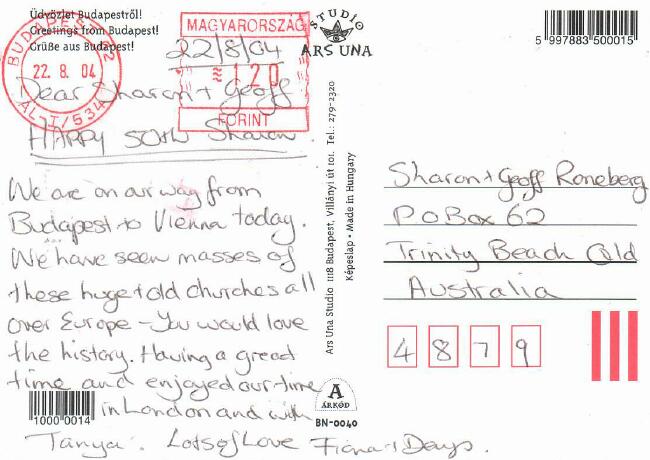 Üdvözlet Budapestről!
Greetings from Budapest!
Grüße aus Budapest!
BUDAPEST 72
22. 8. 04
AL-1/534
MAGYARORSZÁG
≈ 120
FORINT
STUDIO
ARS UNA
5 997883 500015
22/8/04
Dear Sharon + Geoff
HAPPY 50TH Sharon.
We are on our way from
Budapest to Vienna today.
We have seen masses of
these huge + old churches all
over Europe - You would love
the history. Having a great
time and enjoyed our time
in London and with
Tanya. Lots of Love Fiona +
10000014
Ars Una Studio 1118 Budapest, Villányi út 101. Tel.: 279-2320
Képeslap • Made in Hungary
A
ÁRKÓD
BN-0040
Sharon + Geoff Roneberg
PO Box 62
Trinity Beach Qld
Australia
4 8 7 9